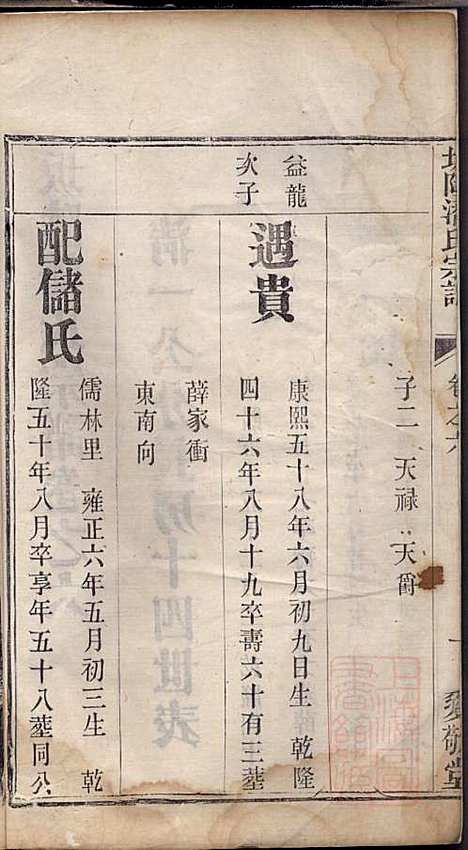 潘氏宗譜
卷之六
一
愛敬堂
子二 天祿 天爵
益龍次子
遇貴
康熙五十八年六月初九日生 乾隆
四十六年八月十九卒壽六十有三塟
薛家衝
東南向
配儲氏
儒林里 雍正六年五月初三生 乾
隆五十年八月卒享年五十八塟同公